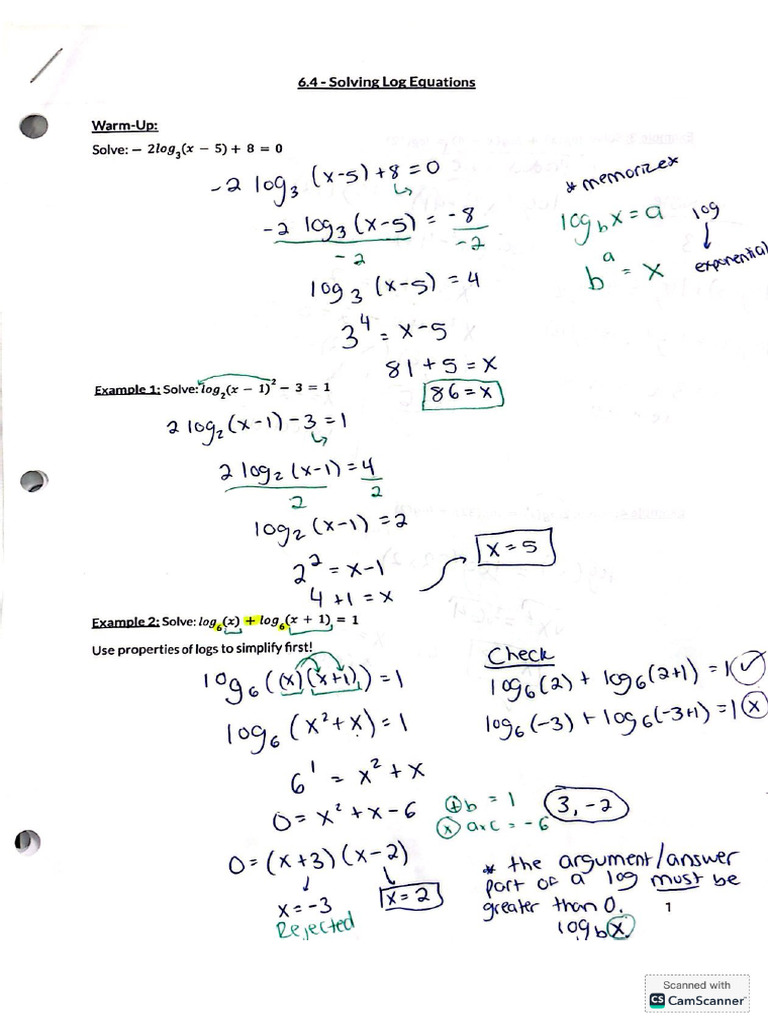 6.4 - Solving Log Equations
Warm-Up:
Solve: − 2log₃(x − 5) + 8 = 0
-2 log₃ (x-5) +8 = 0
-2 log₃ (x-5) = -8
-2 -2
log₃ (x-5) = 4
3⁴ = x-5
81 + 5 = x
86 = x
* memorize *
log_b x = a
b^a = x
log
↓
exponential
Example 1: Solve: log₂(x − 1)² − 3 = 1
2 log₂ (x-1) - 3 = 1
2 log₂ (x-1) = 4
2 2
log₂ (x-1) = 2
2² = x-1
4 +1 = x
x = 5
Example 2: Solve: log₆(x) + log₆(x + 1) = 1
Use properties of logs to simplify first!
log₆ ((x)(x+1)) = 1
log₆ (x²+x) = 1
6¹ = x² + x
0 = x² + x - 6
0 = (x+3) (x-2)
x = -3
Rejected
x = 2
Check
log₆(2) + log₆(2+1) = 1 ✓
log₆(-3) + log₆(-3+1) = 1 x
+ b = 1
x a×c = -6
3, -2
* the argument/answer
part of a log must be
greater than 0.
log_b x
1
Scanned with
CS CamScanner